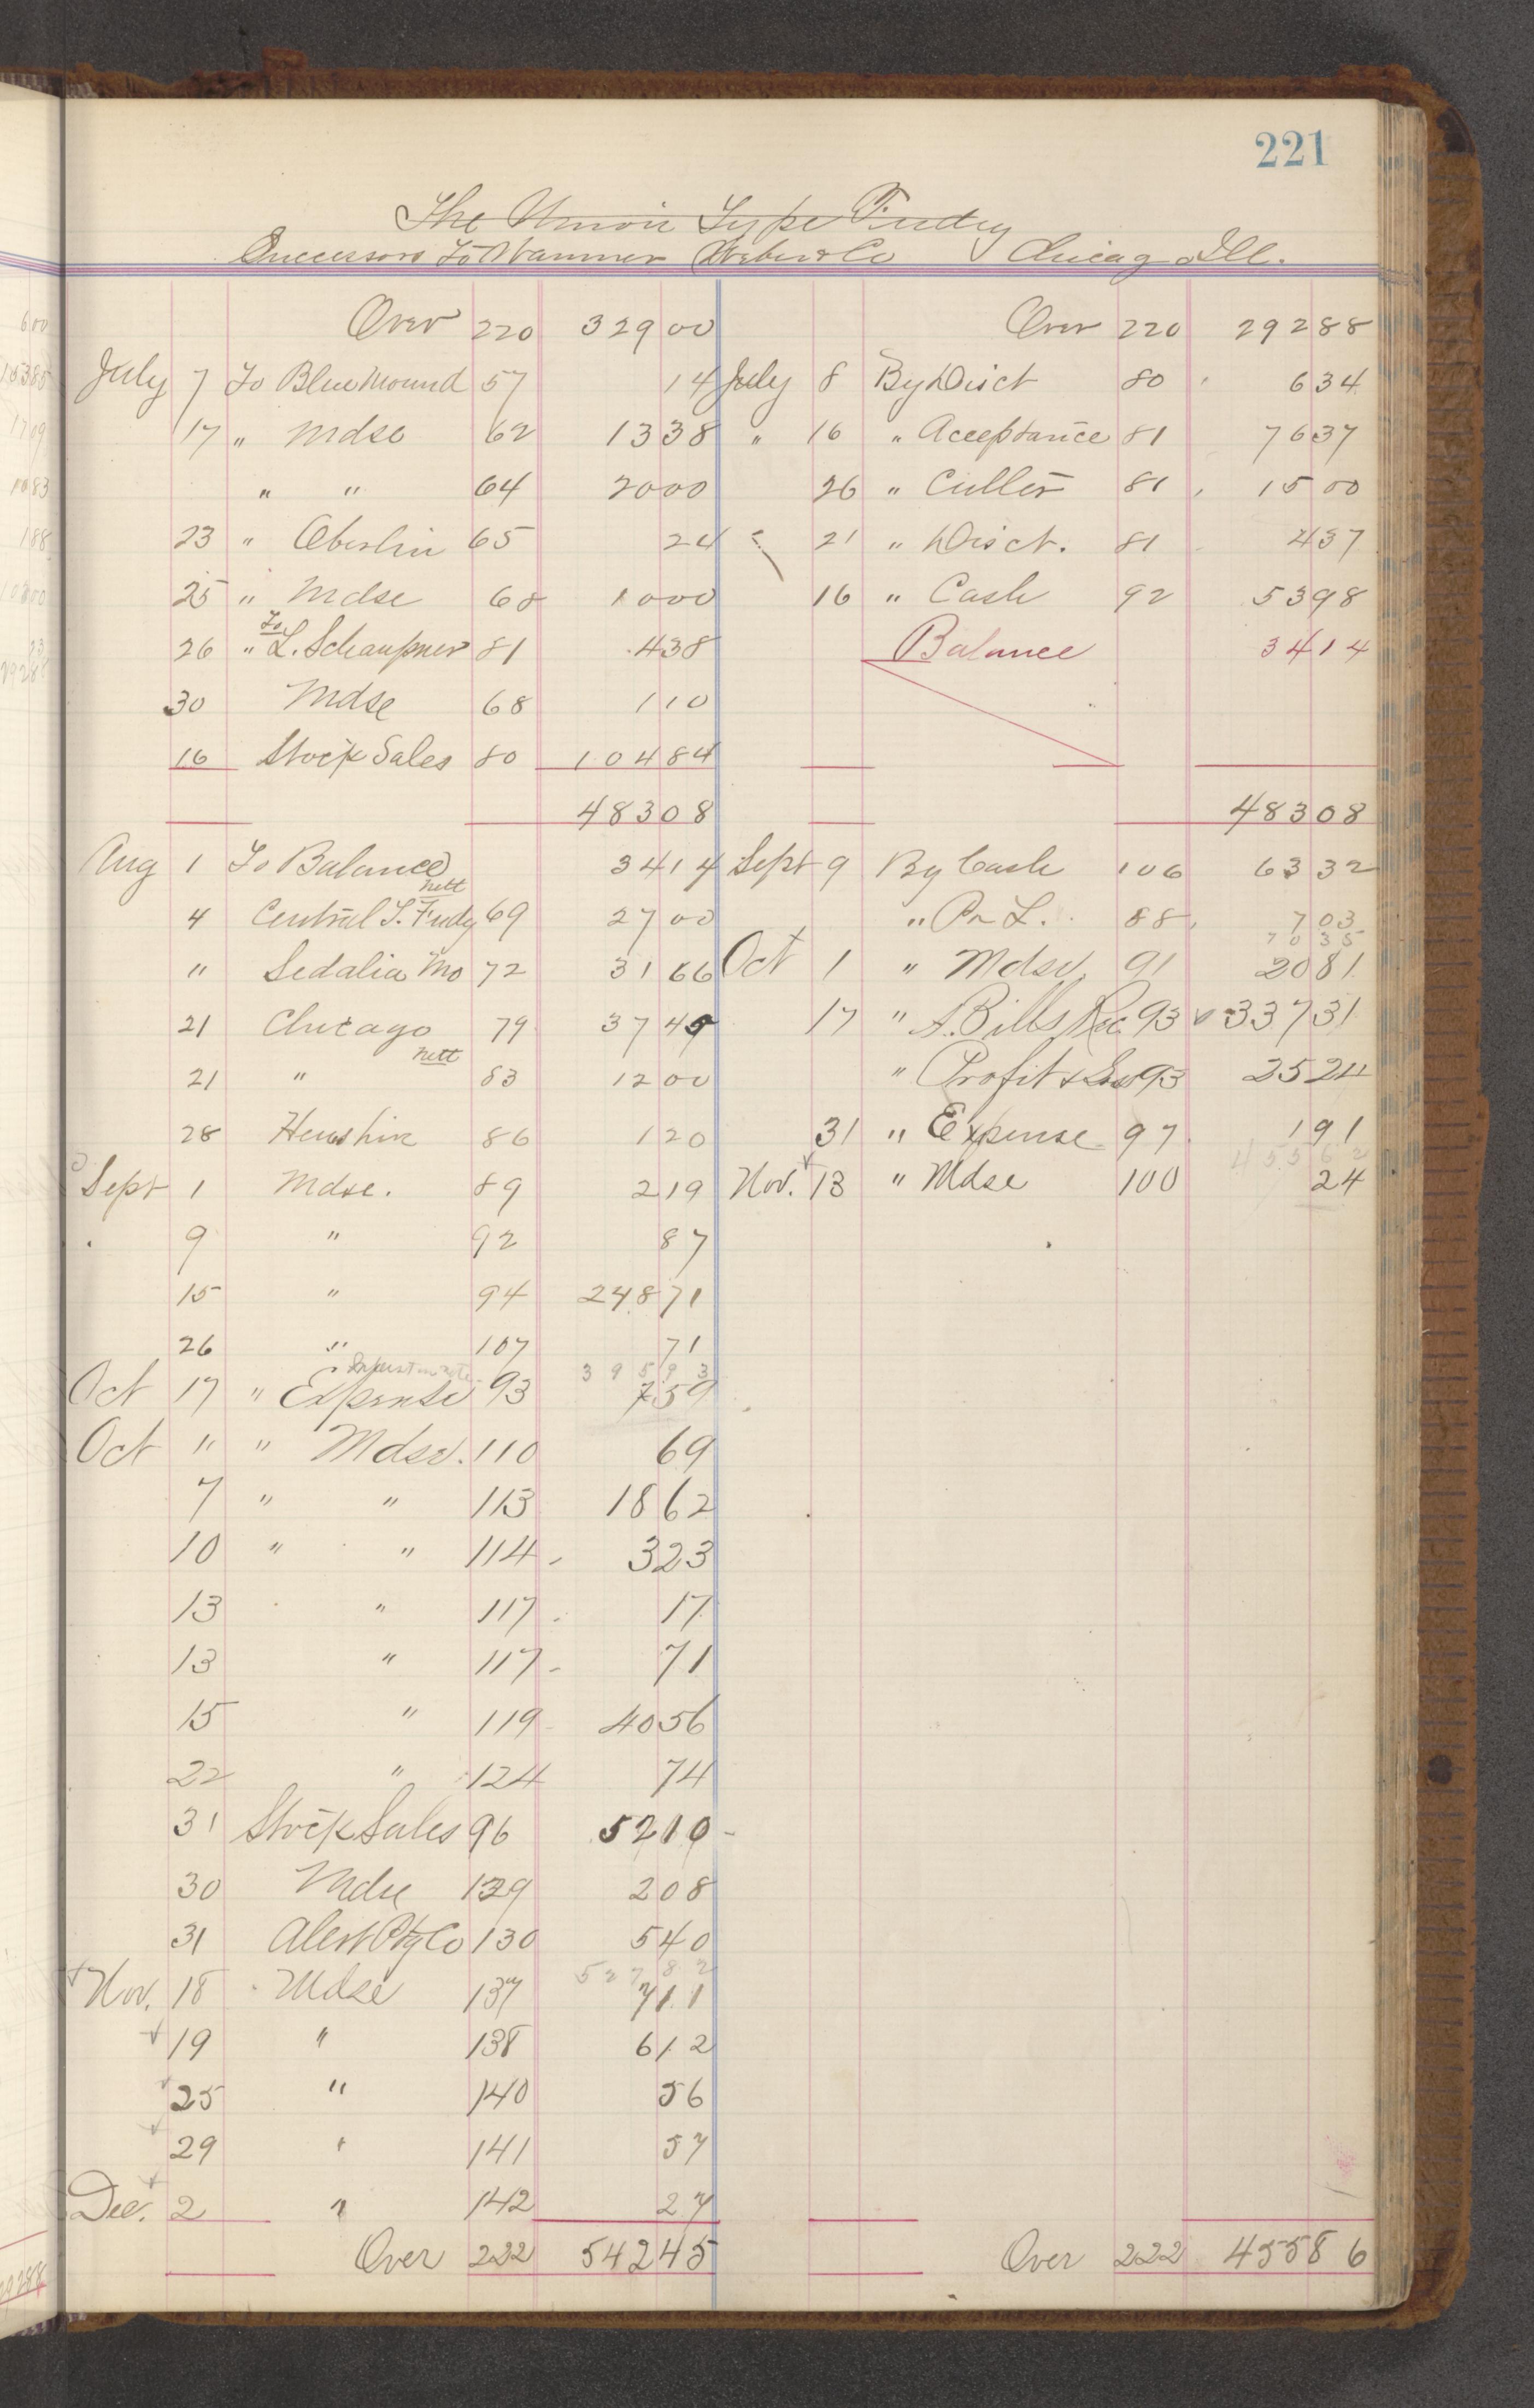 221
The Union Type Fndry
Successors To Wanner Weber & Co Chicago Ill.
Over 220 329 00 Over 220 292 88
July 7 To Blue Mound 57 14 July 8 By Disct 80 6 34
17 " Mdse 62 13 38 " 16 " Acceptance 81 76 37
" " 64 20 00 26 " Culter 81 15 00
23 " Oberlin 65 24 21 " Disct. 81 4 37
25 " Mdse 68 10 00 16 " Cash 92 53 98
26 " To L. Schaupner 81 4 38 Balance 34 14
30 Mdse 68 1 10
16 Stock Sales 80 104 84
483 08 483 08
Aug 1 To Balance 34 14 Sept 9 By Cash 106 63 32
4 Central T. Fndy nett 69 27 00 " Pr L. 88 7 03
70 35
" Sedalia Mo 72 31 66 Oct 1 " Mdse 91 20 81
21 Chicago 79 37 45 17 " A. Bills Rec 93 337 31
21 " nett 83 12 00 " Profit & Loss 93 25 24
28 Henshire 86 1 20 31 " Expense 97 1 91
455 62
Sept 1 Mdse. 89 2 19 Nov. 13 " Mdse 100 24
9 " 92 87
15 " 94 248 71
26 " 107 71
395 93
Oct 17 " Expense 93 7 59
Oct " " Mdse. 110 69
7 " " 113 18 62
10 " " 114 3 23
13 " 117 17
13 " 117 71
15 " 119 40 56
22 " 124 74
31 Stock Sales 96 52 10
30 Mdse 129 2 08
31 Alest Ptg Co 130 5 40
527 82
Nov. 18 Mdse 137 7 11
19 " 138 6 12
25 " 140 56
29 " 141 57
Dec. 2 " 142 27
Over 222 542 45 Over 222 455 86